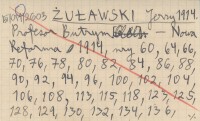 ŻUŁAWSKI Jerzy 1914.
Profesor Butrym — Nowa
Reforma, 1914, nry 60, 64, 66,
70, 76, 78, 80, 82, 84, 86, 88,
90, 92, 94, 96, 100, 102, 104,
106, 108, 113, 115, 118, 123, 125,
128, 129, 130, 132, 134, 136,